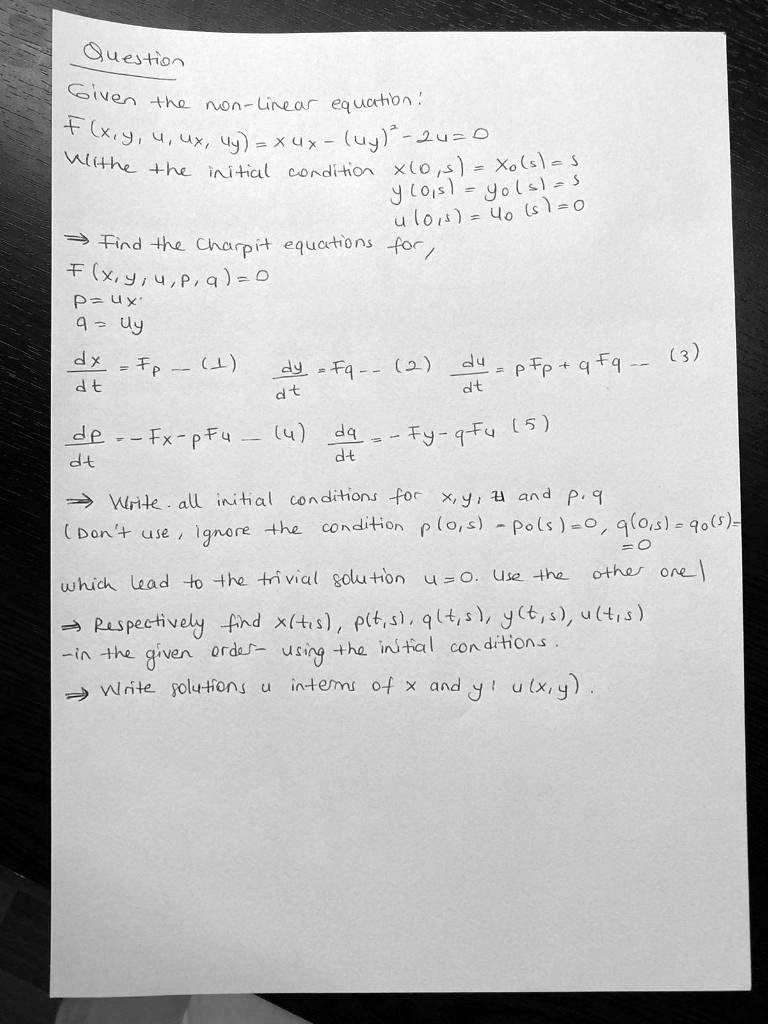 Question
Given the non-linear equation:
F(x, y, u, ux, uy) = x ux - (uy)² - 2u = 0
Withe the initial condition x(0,s) = x0(s) = s
y(0,s) = y0(s) = s
u(0,s) = u0(s) = 0
⇒ Find the Charpit equations for,
F(x, y, u, p, q) = 0
p = ux.
q = uy
dx/dt = Fp --- (1) dy/dt = Fq -- (2) du/dt = pFp + qFq -- (3)
dp/dt = -Fx - pFu --- (4) dq/dt = -Fy - qFu (5)
⇒ Write. all initial conditions for x, y, u and p, q
(Don't use, ignore the condition p(0,s) = p0(s) = 0, q(0,s) = q0(s) =
= 0
which lead to the trivial solution u = 0. Use the other one)
⇒ Respectively find x(t,s), p(t,s), q(t,s), y(t,s), u(t,s)
-in the given order- using the initial conditions.
⇒ Write solutions u interms of x and y: u(x,y).